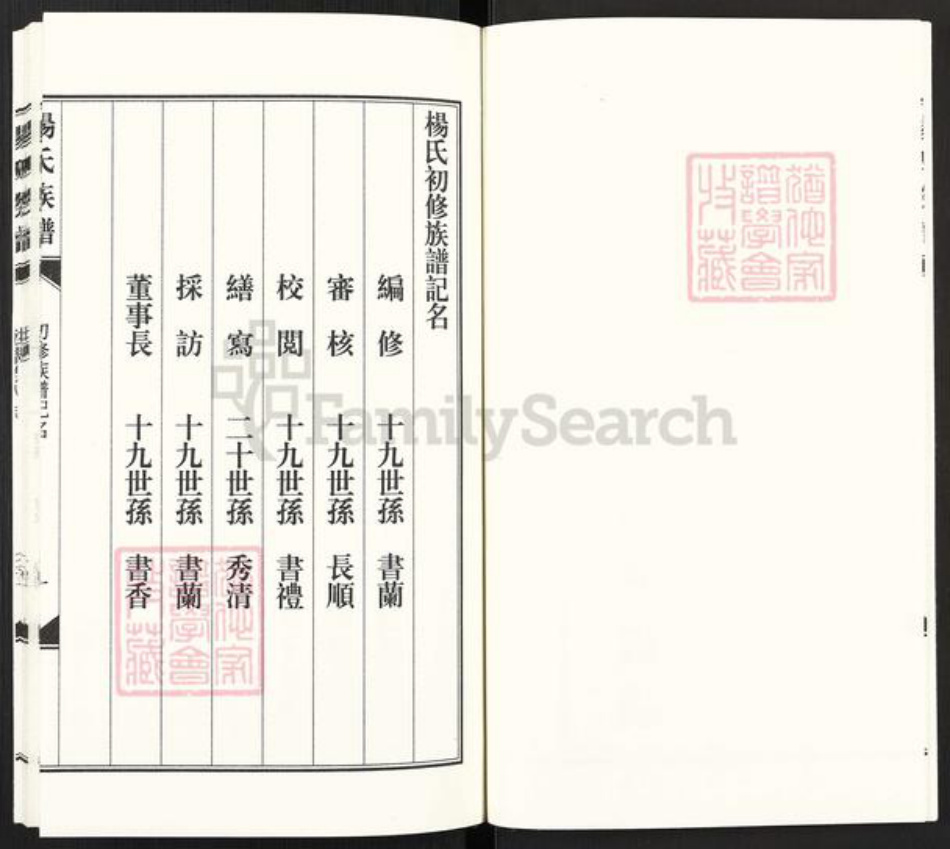 楊氏初修族譜記名
編修 十九世孫 書蘭
審核 十九世孫 長順
校閲 十九世孫 書禮
繕寫 二十世孫 秀清
採訪 十九世孫 書蘭
董事長 十九世孫 書香
楊氏族譜
初修族譜記名
FamilySearch